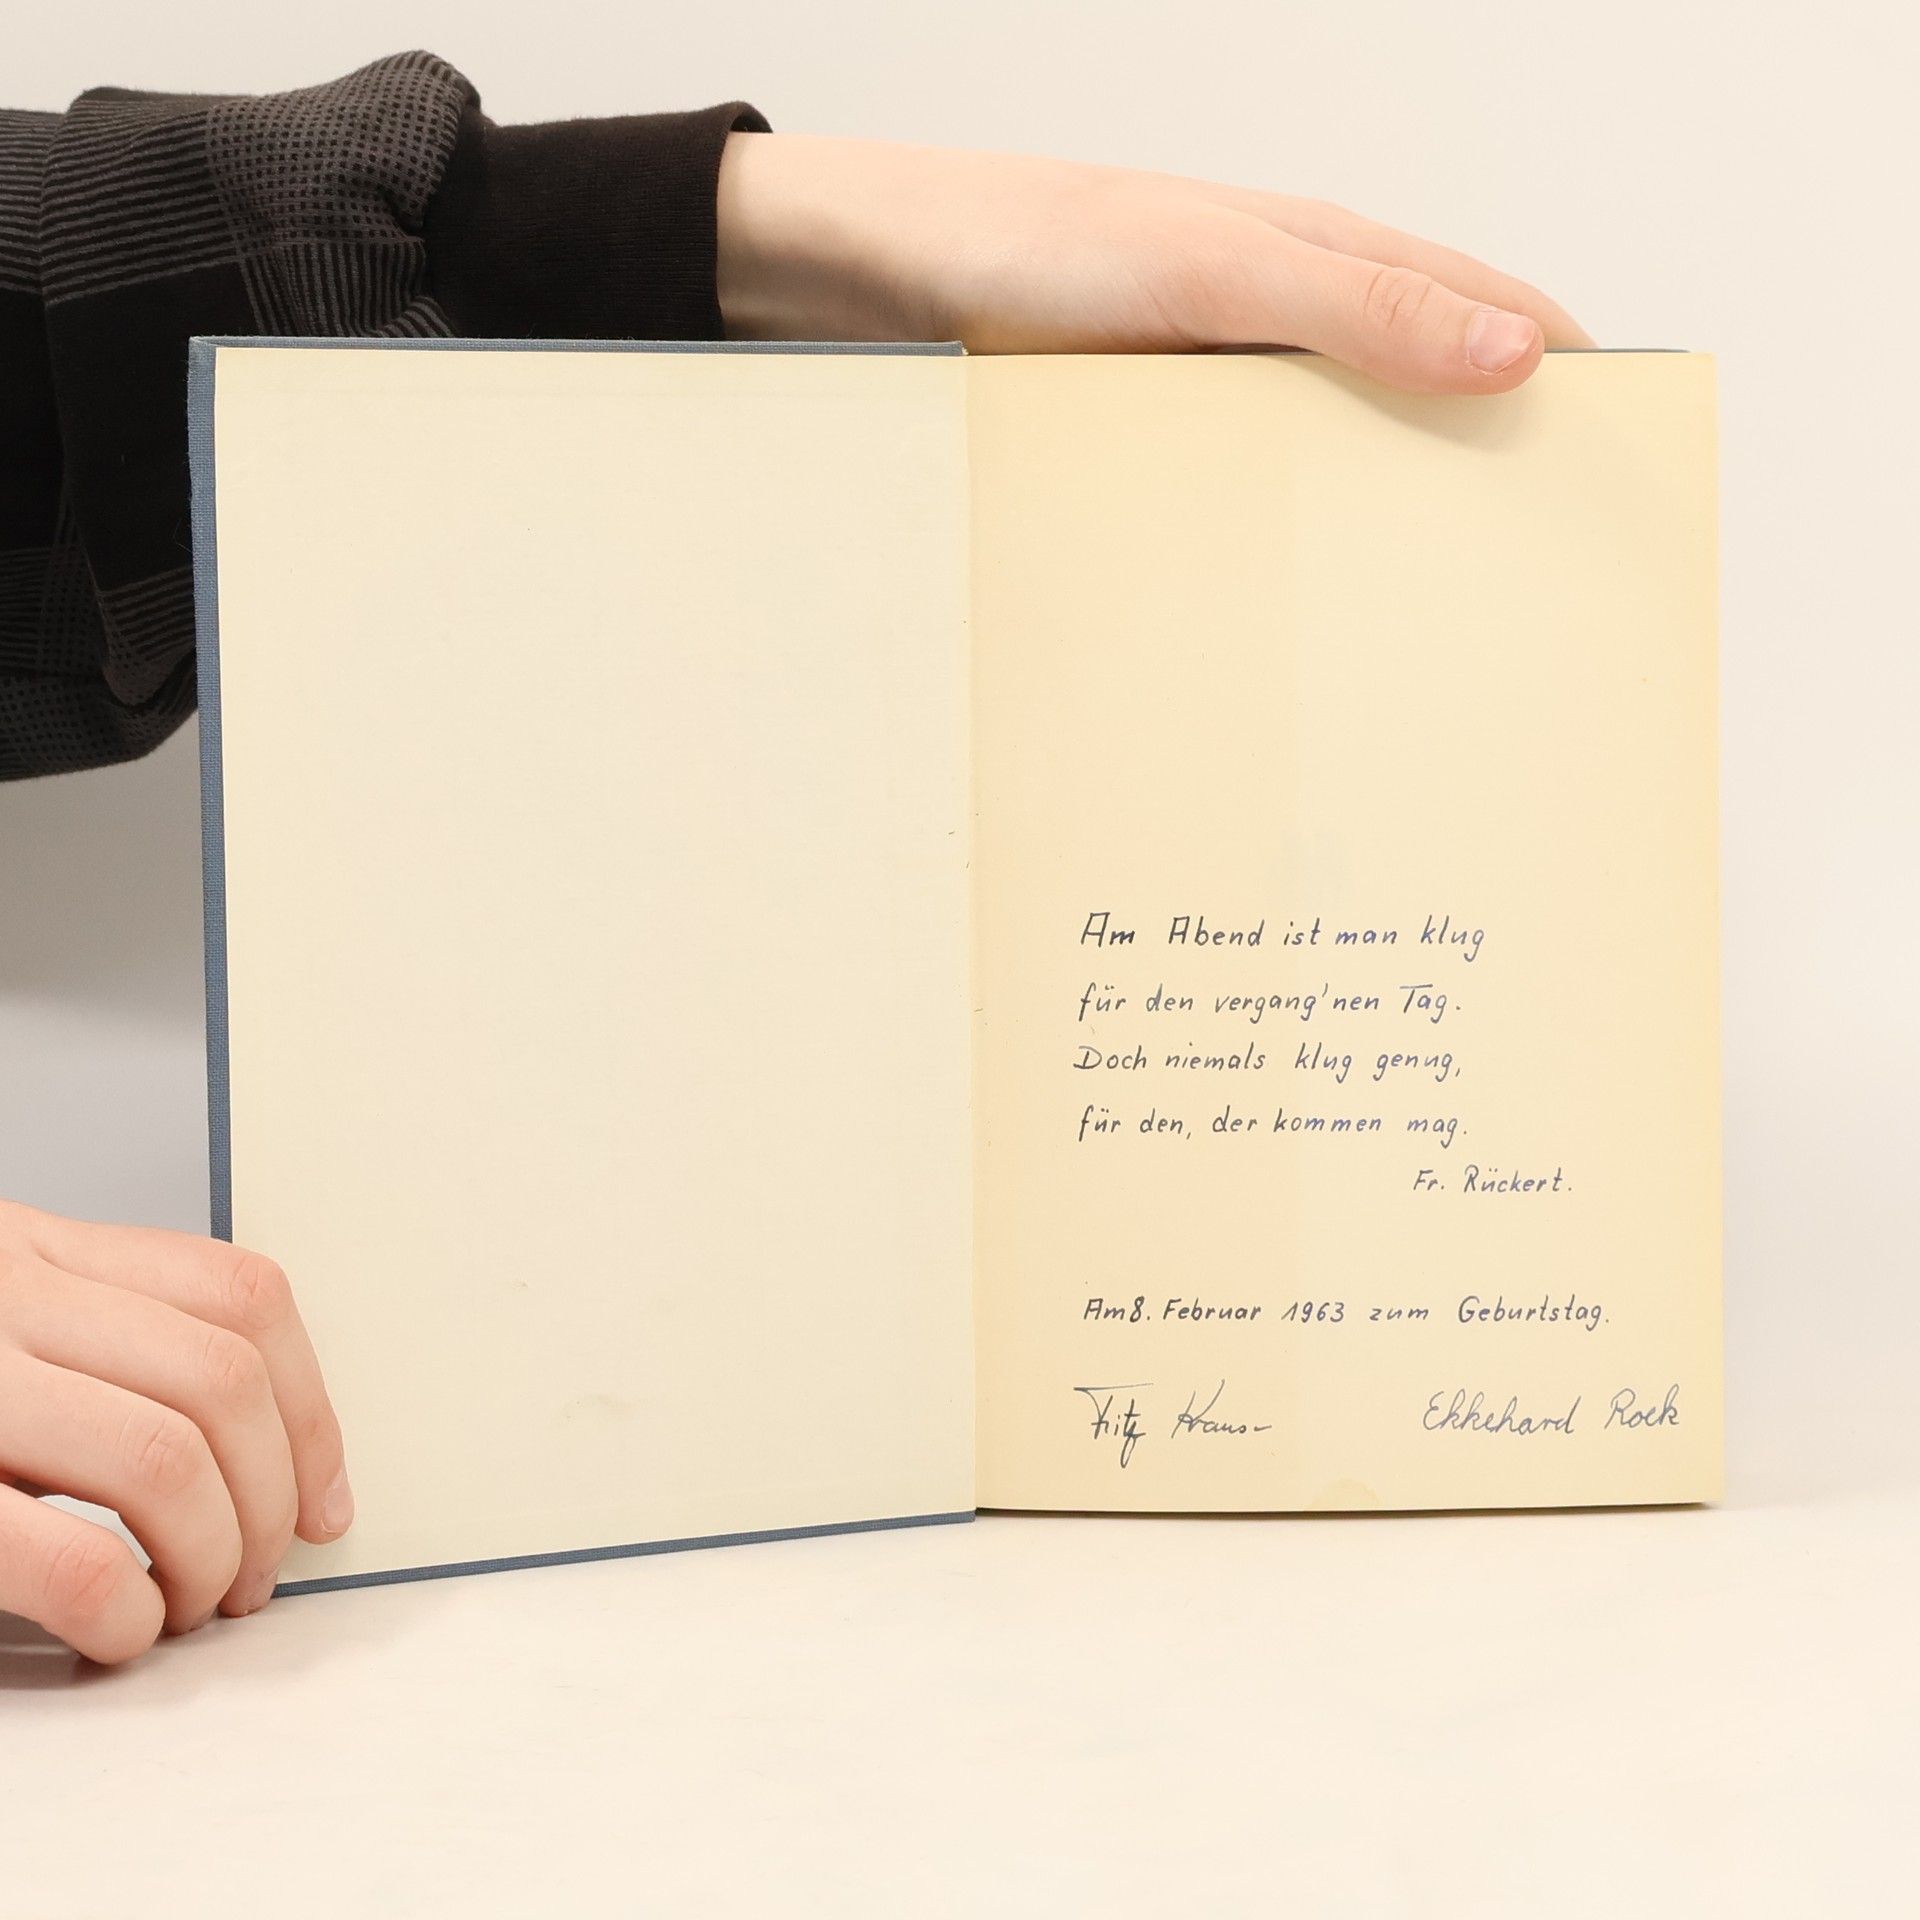 Am Abend ist man klug
für den vergang'nen Tag.
Doch niemals klug genug,
für den, der kommen mag.
Fr. Rückert.
Am 8. Februar 1963 zum Geburtstag.
Fritz Ekkehard